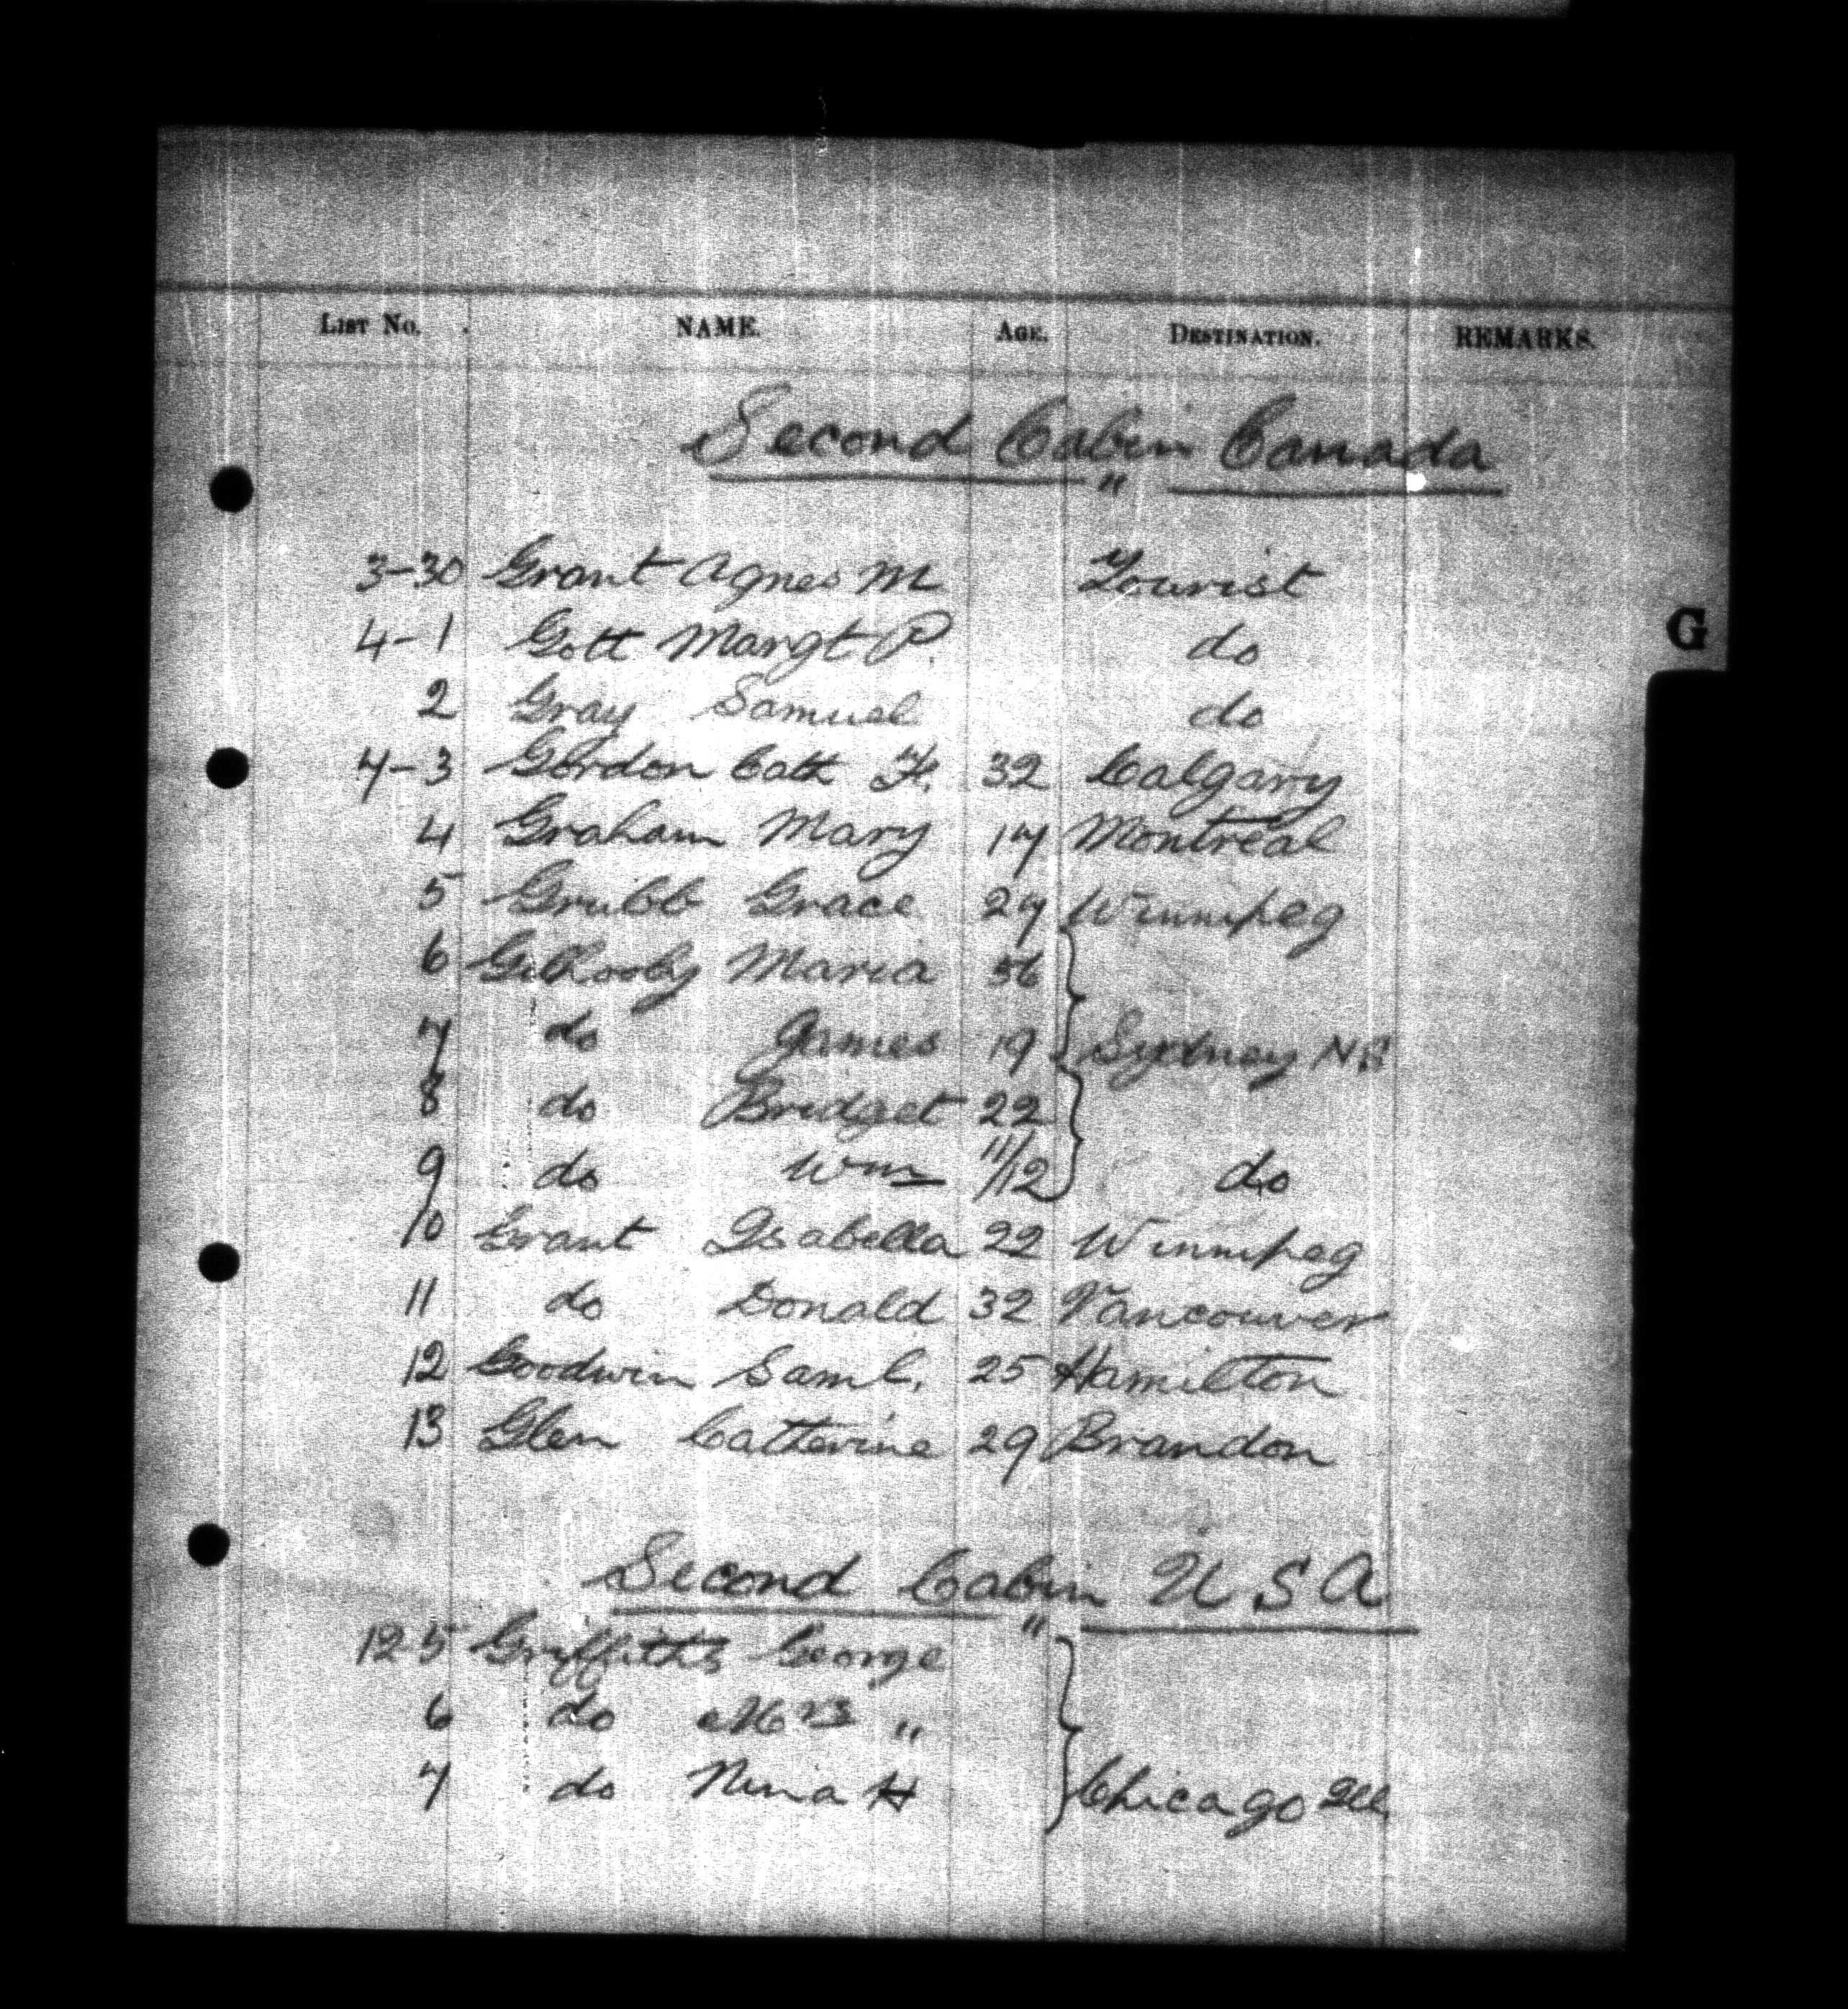 LIST No. NAME. AGE. DESTINATION. REMARKS.
Second Cabin Canada
"
3-30 Grant Agnes M Tourist
G
4-1 Gott Margt P. do
2 Gray Samuel do
4-3 Gordon Cath F. 32 Calgary
4 Graham Mary 17 Montreal
5 Grubb Grace 27 Winnipeg
6 Gilhooly Maria 56
7 do James 19 Sydney
8 do Bridget 22
9 do Wm 11/12 do
10 Grant Isabella 22 Winnipeg
11 do Donald 32 Vancouver
12 Goodwin Saml. 25 Hamilton
13 Glen Catherine 29 Brandon
Second Cabin U S A
"
12-5 Griffiths George
6 do Mrs "
7 do Nina H Chicago Ill.